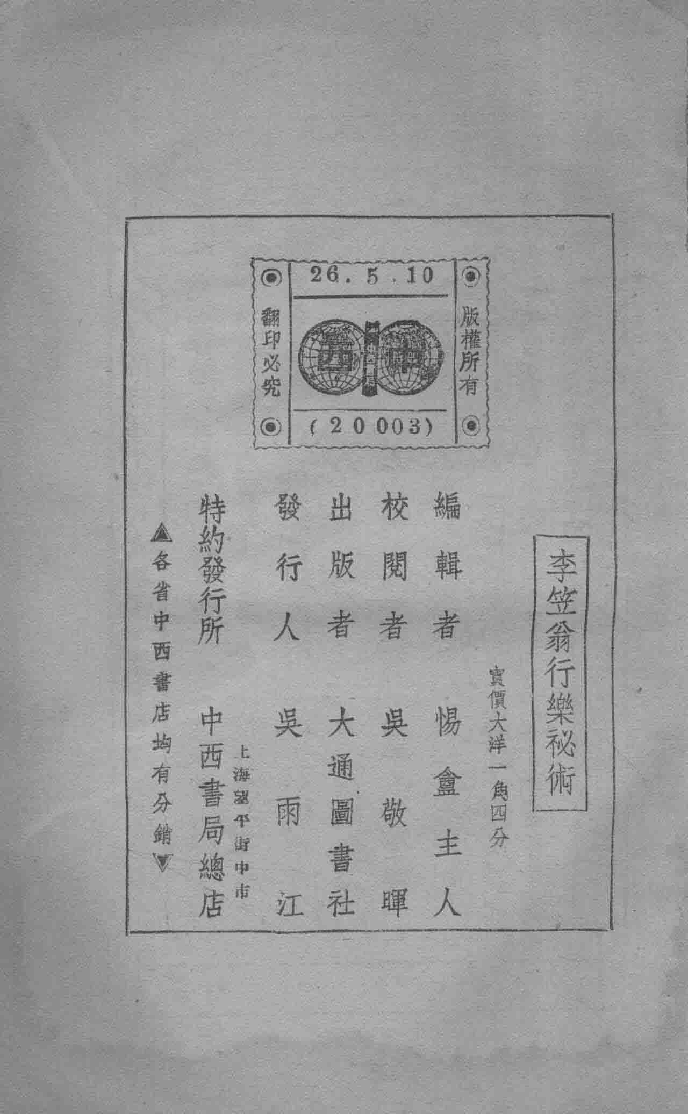 李笠翁行樂祕術
實價大洋一角四分
編輯者 惕盦主人
校閱者 吳敬暉
出版者 大通圖書社
發行人 吳雨江
上海望平街中市
特約發行所 中西書局總店
▲各省中西書店均有分銷▼
26.5.10
版權所有
中西
翻印必究
(20003)